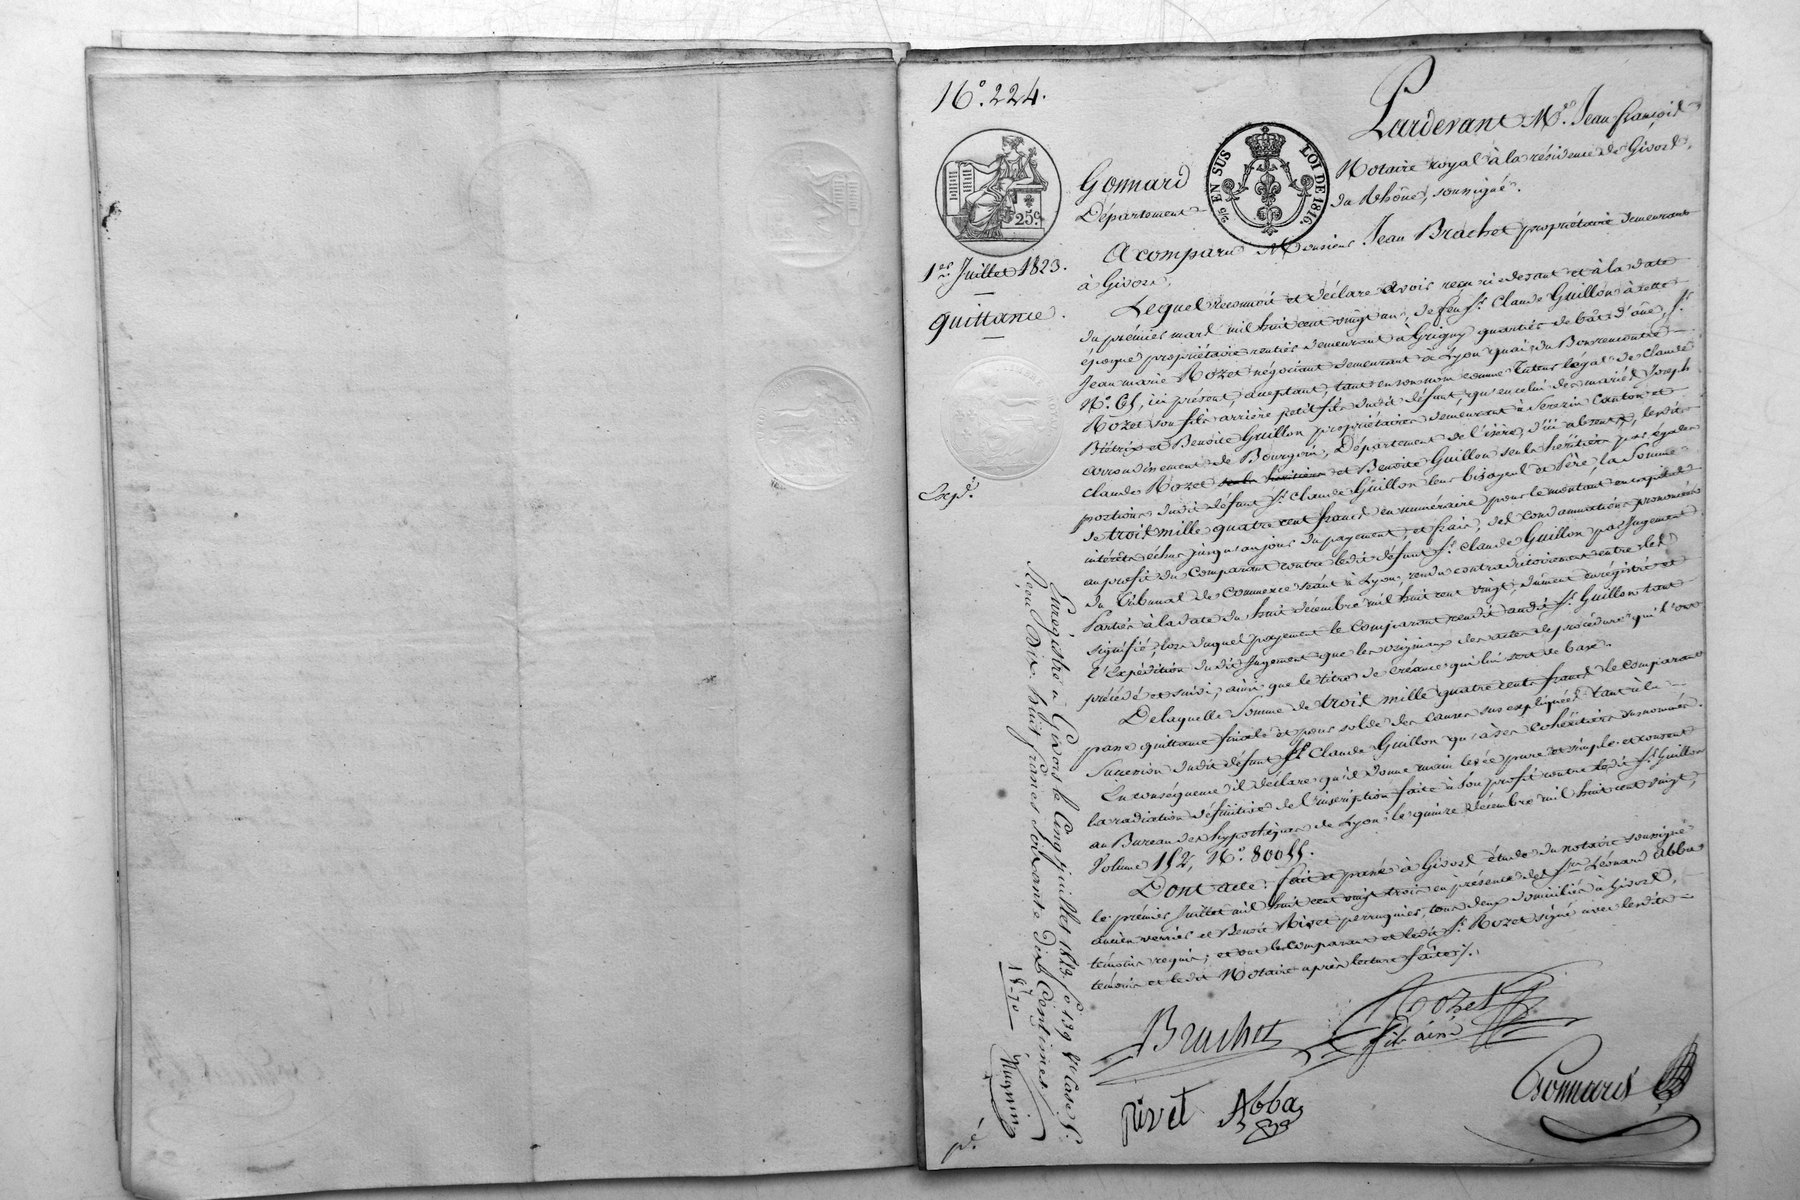 N°. 224.
Pardevant Me. Jean françois
Gonnard
EN SUS
LOI DE 1816.
Notaire royal à la résidence de Givors,
Département
du Rhône, soussigné.
25c.
1er. Juillet 1823.
quittance.
A comparu Monsieur Jean Brachet propriétaire demeurant
à Givors.
Lequel reconnoit et déclare avoir reçu ci devant et à la date
du premier mars mil huit cent vingt un, de feu Sr. Claude Guillon à cette
époque propriétaire rentier demeurant à Grigny quartier de bât d'âne, Sr.
Jean marie Rozet négociant demeurant à Lyon quai du Bonrencontre
N°. 65, ici présent, acceptant, tant en son nom comme tuteur légal de Claude
Rozet son fils arrière petit fils dudit défunt, qu'en celui des mariés Joseph
Biétrix et Benoite Guillon propriétaires demeurant à Serezin canton et
arrondissement de Bourgoin, Département de l'isère, d'ici absents, lesdits
Claude Rozet et Benoite Guillon seuls héritiers par égales
portions dudit défunt Sr. Claude Guillon leur bisayeul et Père, la Somme
de trois mille quatre cent francs en numéraire pour le montant en capital
intérêts échus jusqu'au jour du payement, et frais, des condamnations prononcées
au profit du Comparant contre ledit défunt Sr. Claude Guillon par Jugement
du Tribunal de Commerce séant à Lyon, rendu contradictoirement entre les
Parties à la date du huit décembre mil huit cent vingt, dûment enregistré et
signifié, lors duquel payement le Comparant rendit audit Sr. Guillon tant
l'Expédition dudit Jugement que les originaux des actes de procédure qui l'ont
précédé et suivi, ainsi que le titre de créance qui lui sert de base.
De laquelle Somme de trois mille quatre cents francs le comparant
passe quittance finale et pour solde des causes sus expliquées tant à la
Succession dudit défunt Sr. Claude Guillon qu'à ses cohéritiers susnommés.
En conséquence il déclare qu'il donne main levée pure et simple et consent
la radiation définitive de l'inscription faite à son profit contre ledit Sr. Guillon
au Bureau des hypothèques de Lyon le quinze décembre mil huit cent vingt,
Volume 152, N°. 80055.
Dont acte: fait et passé à Givors étude du notaire soussigné
le premier Juillet mil huit cent vingt trois en présence des Srs. Léonard Abba
ancien verrier et Benoit Rivet perruquier, tous deux domiciliés à Givors,
témoins requis; et ont le comparant et ledit Sr. Rozet signé avec lesdits
témoins et ledit Notaire après lecture faite.
Expé.
Enregistré à Givors le Cinq juillet 1823 fo 139 Vo Case 5.
Reçu Dix huit francs soixante dix Centimes
18-70
Magnin
Brachet
Rozet
fils ainé
Rivet
Abba
Gonnard
pé.